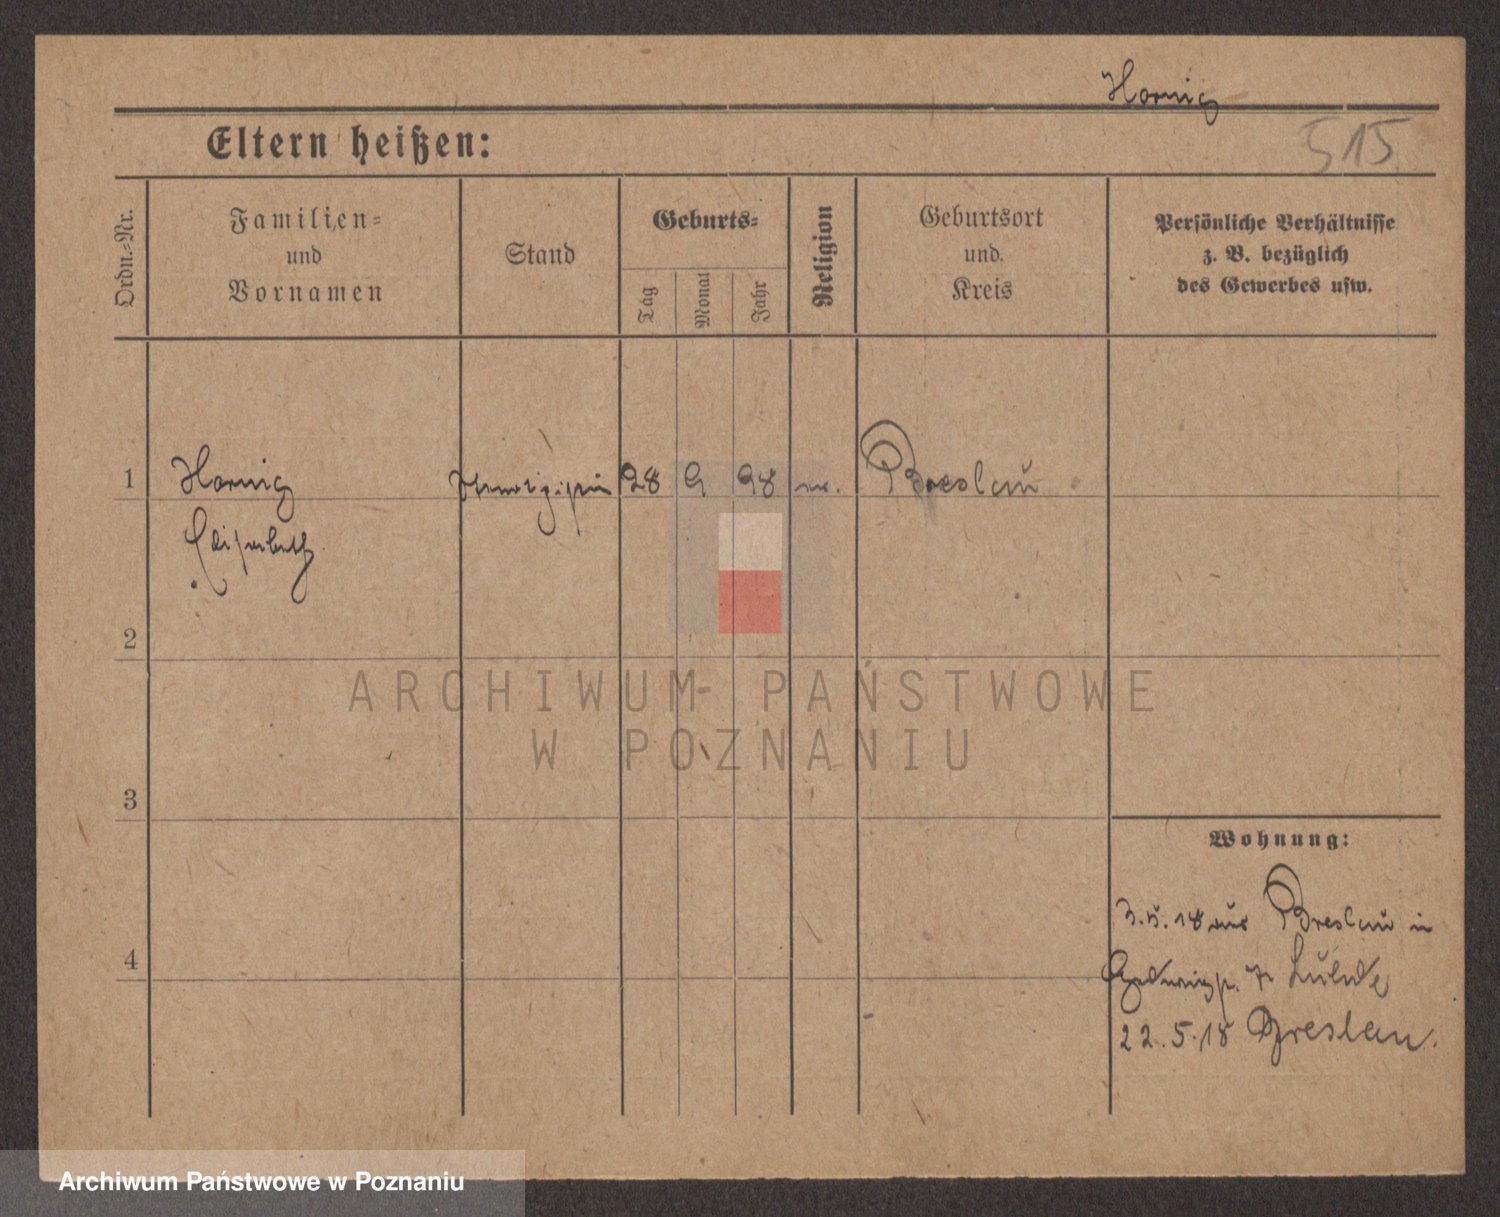 Hornig
Eltern heißen:
515
Ordn.-Nr.
Familien-
und
Vornamen
Stand
Geburts-
Tag
Monat
Jahr
Religion
Geburtsort
und
Kreis
Persönliche Verhältnisse
z. B. bezüglich
des Gewerbes usw.
1 Hornig 28 9 98 ev. Breslau
Elisabeth
2
ARCHIWUM PAŃSTWOWE
W POZNANIU
3
Wohnung:
3.5.18 aus Breslau in
7
4
22.5.18 Breslau.
Archiwum Państwowe w Poznaniu